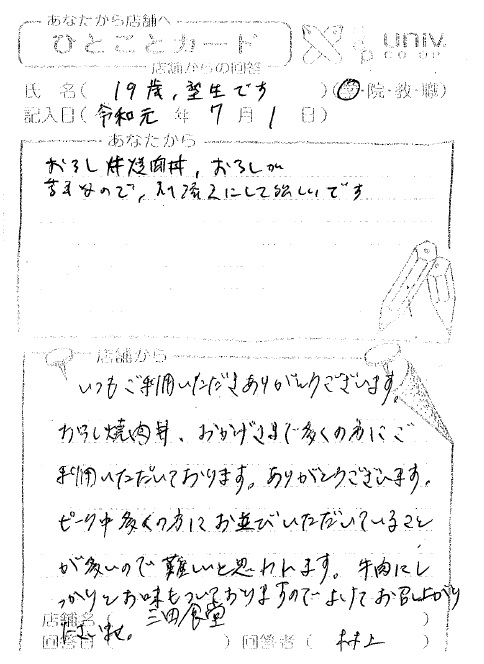 あなたから店舗へ
ひとことカード
univ.
CO-OP
店舗からの回答
氏 名( 19歳，塾生です )(学・院・教・職)
記入日( 令和元 年 7 月 1 日)
あなたから
おろし 焼肉丼，おろしが
苦手なので，別添えにして欲しいです
店舗から
いつもご利用いただきありがとうございます。
おろし焼肉丼、おかげさまで多くの方にご
利用いただいております。ありがとうございます。
ピーク中多くの方にお並びいただいていること
が多いので難しいと思われます。牛肉にし
っかりとお味もついておりますのでよけてお召し上がり
下さいませ。
店舗名( 三田食堂 )
回答日( ) 回答者( 村上 )